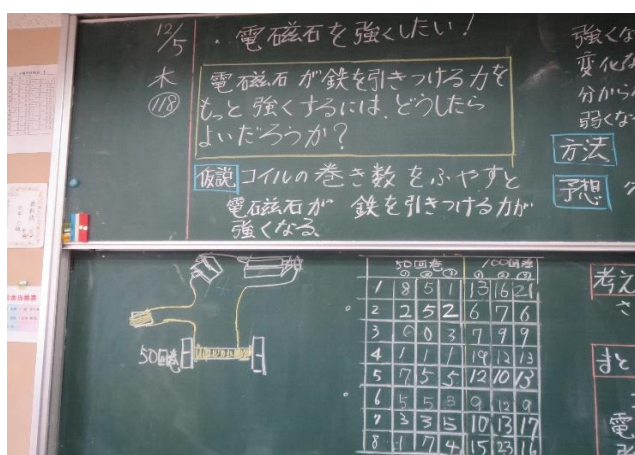 12/5
木
118
・電磁石を強くしたい!
電磁石が鉄を引きつける力を
もっと強くするには、どうしたら
よいだろうか?
仮説 コイルの巻き数をふやすと
電磁石が 鉄を引きつける力が
強くなる。
強くな
変化な
分から
弱くな
方法
予想
50回巻
50回巻 100回巻
① ② ③ ① ② ③
1 8 5 1 13 16 21
2 2 5 2 6 7 6
3 6 0 3 7 9 9
4 1 1 1 19 12 13
5 7 5 5 12 10 13
6 5 5 3 9 12 9
7 3 3 5 10 13 17
8 1 7 4 15 23 16
考え
さ
まと
電